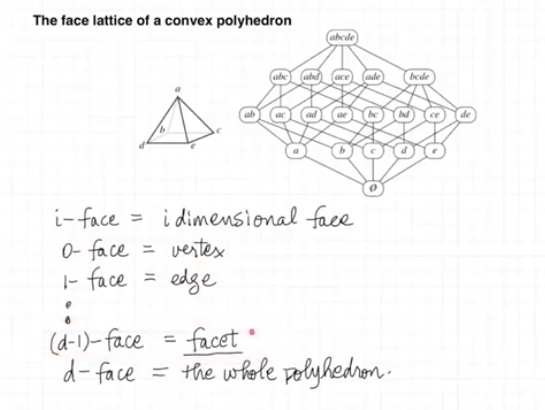 The face lattice of a convex polyhedron
abcde
abc abd ace ade bcde
ab ac ad ae bc bd ce de
a b c d e
Ø
a
b
c
d
e
i-face = i dimensional face
0-face = vertex
1-face = edge
(d-1)-face = facet
d-face = the whole polyhedron.